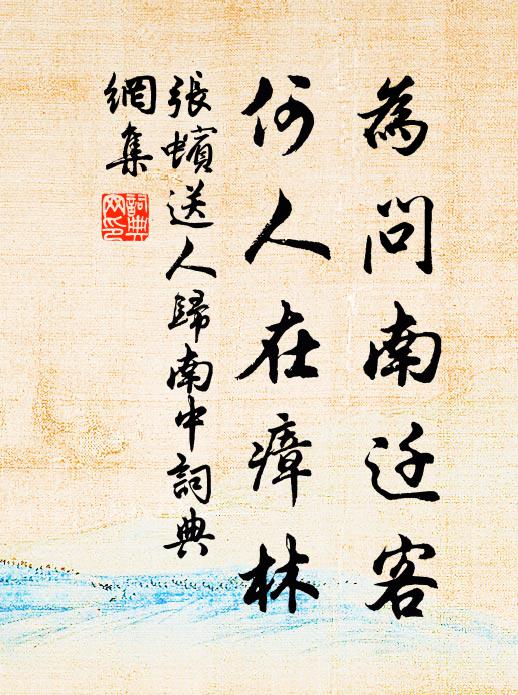 為問南迁客
何人在瘴林
張蠙送人歸南中詞典
網集
詞典
网印